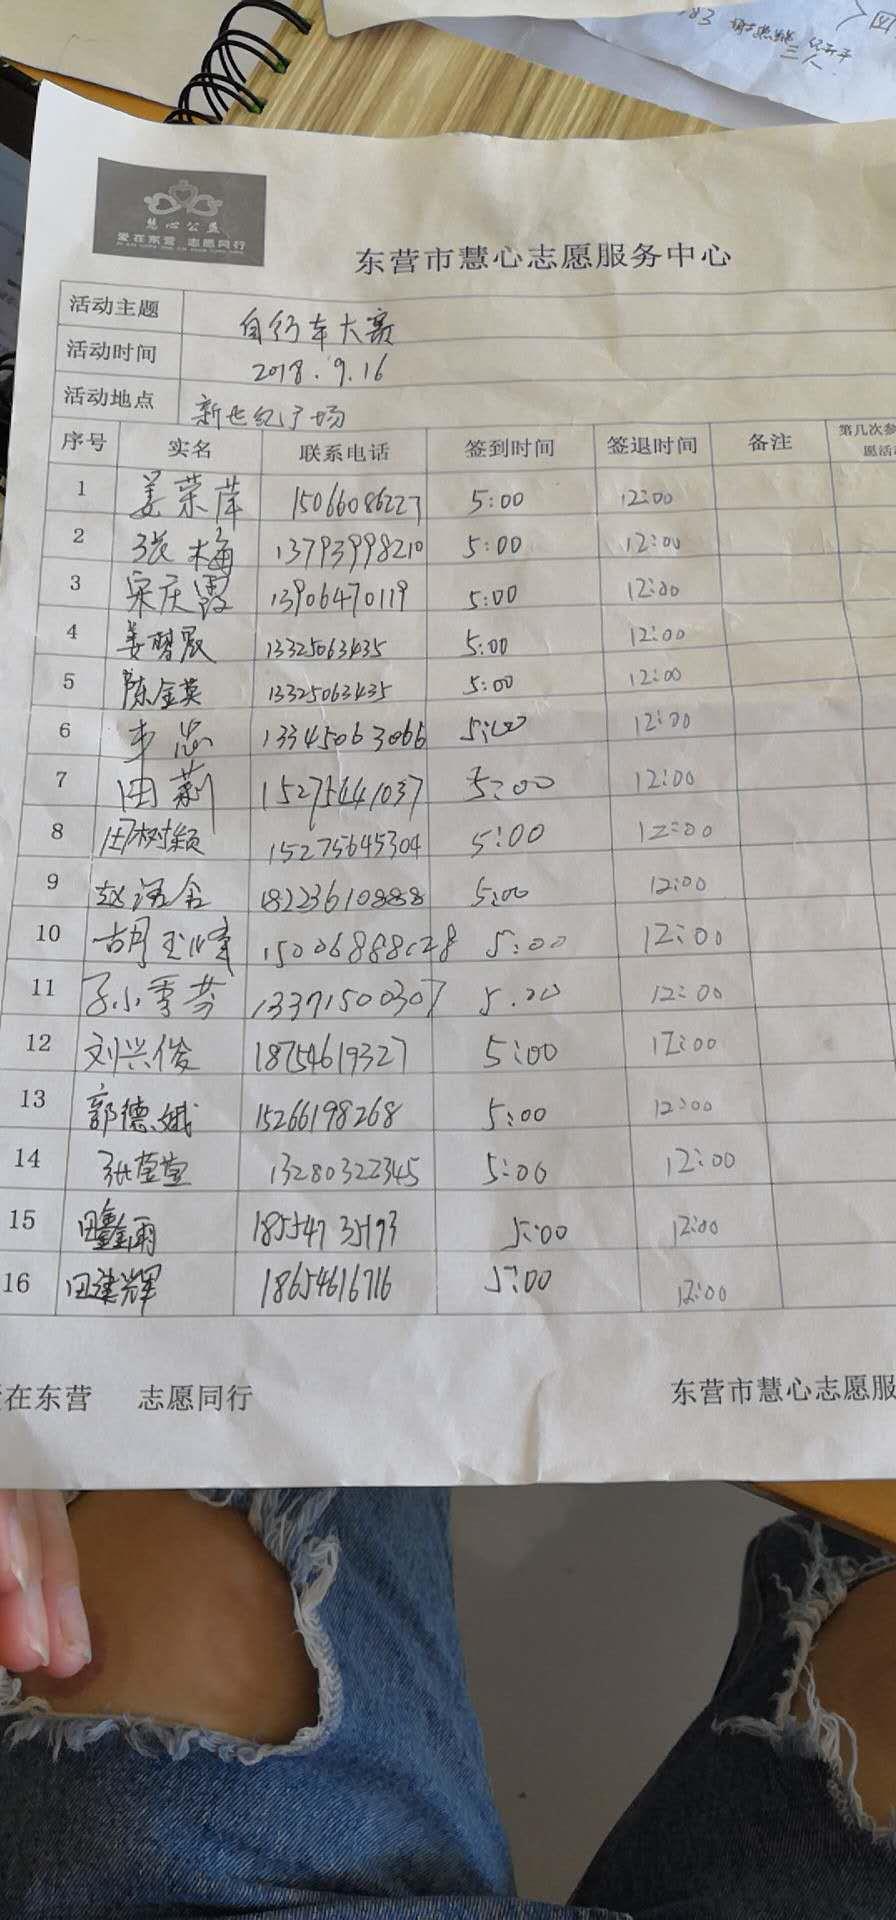 183
三人
慧心公益
爱在东营 志愿同行
东营市慧心志愿服务中心
活动主题 自行车大赛
活动时间 2018.9.16
活动地点 新世纪广场
序号 实名 联系电话 签到时间 签退时间 备注 第几次参
愿活动
1 姜荣萍 15066086227 5:00 12:00
2 张梅 13793998210 5:00 12:00
3 宋庆霞 13906470119 5:00 12:00
4 姜 13325063435 5:00 12:00
5 陈金英 13325063435 5:00 12:00
6 13345063066 5:00 12:00
7 田莉 15275441037 5:00 12:00
8 树颖 15275645304 5:00 12:00
9 赵 18223610888 5:00 12:00
10 胡玉峰 15006888028 5:00 12:00
11 孙季芬 13371500307 5.00 12:00
12 刘兴俊 18754619327 5:00 12:00
13 郭德娥 15266198268 5:00 12:00
14 张莹莹 13280322345 5:00 12:00
15 田鑫雨 18554735193 5:00 12:00
16 田建辉 18654616716 5:00 12:00
在东营 志愿同行 东营市慧心志愿服